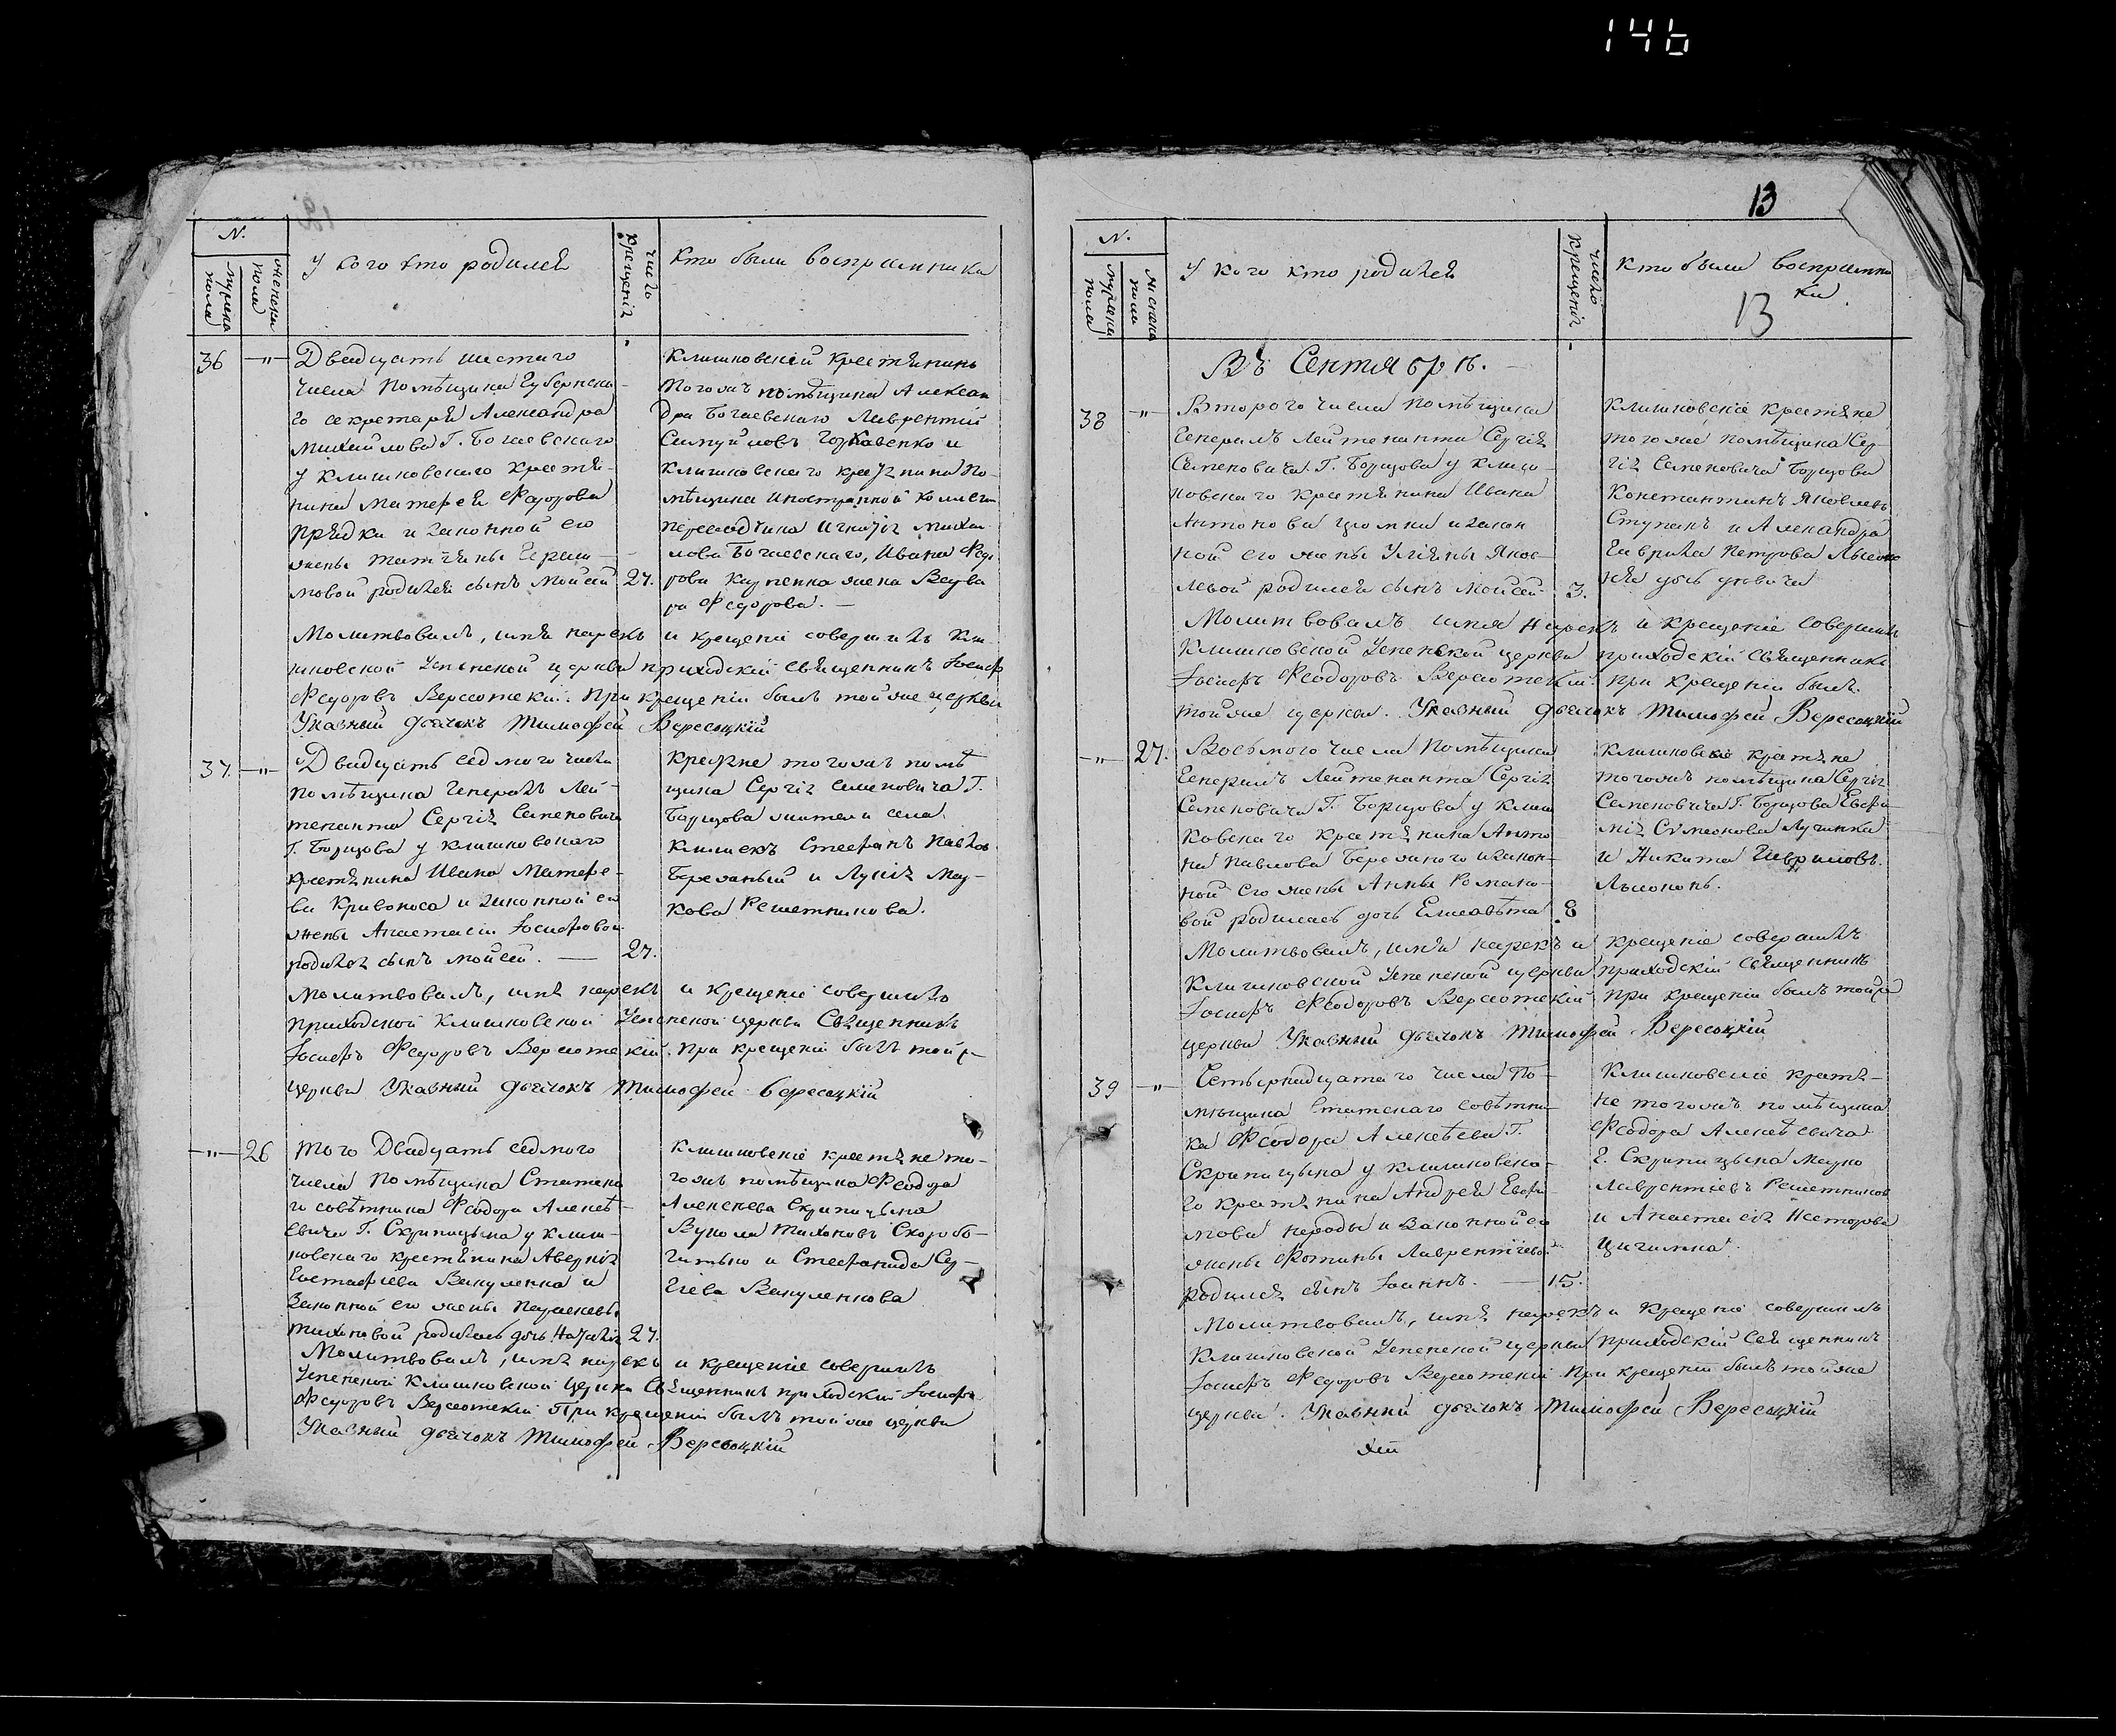 146
N.
мужеска пола
женска пола
У кого кто родился
число крещенія
Кто были восприимники
36 —"— Двадцять шестаго
числа Помѣщика Губернска-
го секретаря Александра
Михайлова Г. Богаевскаго
у Клишковского крестя-
нина Матфея Федорова
Прядки и законной его
жены Татіяны
мовой родился сынъ Мойсей 27.
Клишковскій крестянинъ
тогожъ помѣщика Алексан
дра Богаевскаго Лаврентій
Самуйловъ и
Клишковскаго крестянина По-
мѣщика иностранной колегіи
переводчика Игнатія Михай
лова Богаевскаго, Ивана Фед
рова Карпенка жена Варва
ра Федорова. —
Молитвовалъ, имя нарекъ и крещеніе совершилъ Кли-
шковской Успенской церкви приходскій священникъ Іосифъ
Федоровъ Вересотскій. При крещеніи былъ тойже церкви
Указный дьячокъ Тимофей Вересоцкій
37. —"— Двадцять седмого числа
помѣщика Генералъ Лей-
тенанта Сергія Семеновича
Г. Борщова у клишковского
крестянина Ивана Матфе-
ва Кривоноса и законной его
жены Анастасіи Іосифовой
родился сынъ Мойсей. — 27.
Крестяне тогожъ помѣ
щика Сергія Семеновича Г.
Борщова жители села
Клишекъ Стефанъ Павлов
Бережный и Лукія
кова Решетникова.
Молитвовалъ, имя нарекъ и крещеніе совершилъ
приходской Клишковской Успенской церкви Священникъ
Іосифъ Федоровъ Вересотскій. При крещеніи былъ тойже
церкви Указный дьячокъ Тимофей Вересоцкій
—"— 26 Того Двадцять седмого
числа Помѣщика Статска
го совѣтника Феодора Алексѣ-
евича Г. Скрипицына у клиш-
ковскаго крестянина Аверкія
Евстафіева Викуленка и
Законной его жены Параскевы
Тихоновой родилась дочь Наталія 27.
Клишковскіе крестяне то-
гожъ помѣщика Феодора
Алексѣева Скрипицына
Вукола Тихоновъ Скоробо-
гатько и Стефанида Сер-
гіева Викуленкова
Молитвовалъ, имя нарекъ и крещеніе совершилъ
Успенской Клишковской Церкви Священникъ приходскій Іосифъ
Федоровъ Вересотскій При крещеніи былъ тойже церкви
Указный дьячокъ Тимофей Вересоцкій
13
N.
мужеска пола
женска пола
У кого кто родился
число крещенія
Кто были восприимни
ки
13
Въ Сентябрѣ. —
38 —"— Второго числа помѣщика
Генералъ Лейтенанта Сергія
Семеновича Г. Борщова у клиш-
ковскаго крестянина Ивана
Антонова и закон
ной его жены Уліяны Яков-
левой родился сынъ Мойсей 3.
Клишковскіе крестяне
тогоже помѣщика Сер-
гія Семеновича Борщова
Константинъ Яковлевъ
Ступакъ и Александра
Гаврила Петрова
дочь дѣвица
Молитвовалъ имя нарекъ и крещеніе совершилъ
Клишковской Успенской церкви приходскій Священникъ
Іосифъ Феодоровъ Вересотскій. при крещеніи былъ.
тойже церкви. Указный дьячокъ Тимофей Вересоцкій
—"— 27. Восьмого числа Помѣщика
Генералъ Лейтенанта Сергія
Семеновича Г. Борщова у клиш
ковскаго крестянина Анто
на Павлова Бережного и закон-
ной его жены Анны Романо-
вой родилась дочь Елисавѣта 8
Клишковскіе крестяне
тогожъ помѣщика Сергія
Семеновича Г. Борщова Евфи-
мія Сѵмеонова Лучинка
и Никита Гавриловъ
Молитвовалъ, имя нарекъ и крещеніе совершилъ
Клишковской Успенской церкви приходскій Священникъ
Іосифъ Феодоровъ Вересотскій при крещеніи былъ тойже
церкви Указный дьячокъ Тимофей Вересоцкій
39 —"— Четырнадцятаго числа По-
мѣщика Статскаго совѣтни-
ка Феодора Алексѣева Г.
Скрипицына у клишковска-
го крестянина Андрея Евфи-
мова и Законной его
жены Фотины Лаврентіевой
родился сынъ Іоаннъ. — 15.
Клишковскіе крестя-
не тогожъ помѣщика
Феодора Алексѣевича
Г. Скрипицына
Лаврентіевъ Решетников
и Анастасія Несторова
Цигипка.
Молитвовалъ, имя нарекъ и крещеніе совершилъ
Клишковской Успенской церкви приходскій Священникъ
Іосифъ Федоровъ Вересотскій При крещеніи былъ тойже
церкви. Указный дьячокъ Тимофей Вересоцкій